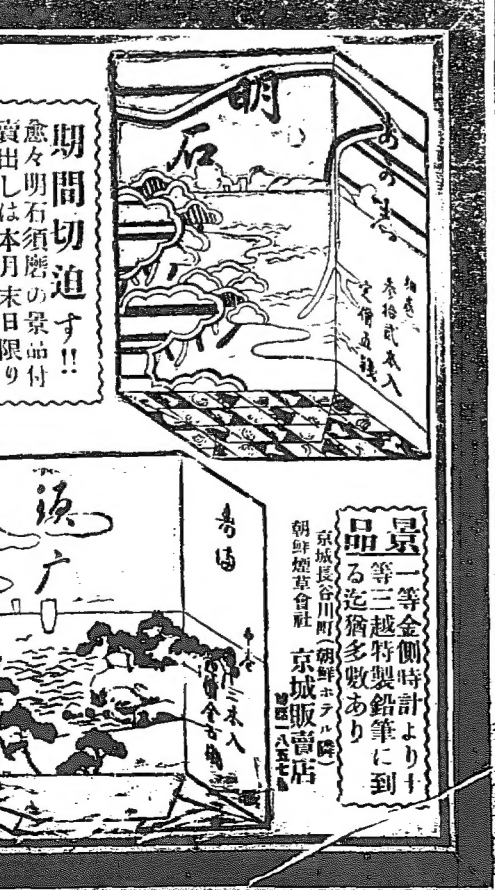 明石
あかし
細巻
参拾貳本入
定價五錢
期間切迫す!!
愈々明石須磨の景品付
賣出しは本月末日限り
景品
一等金側時計より十
等三越特製鉛筆に到
る迄猶多數あり
京城長谷川町(朝鮮ホテル隣)
朝鮮煙草會社 京城販賣店
須广
本入